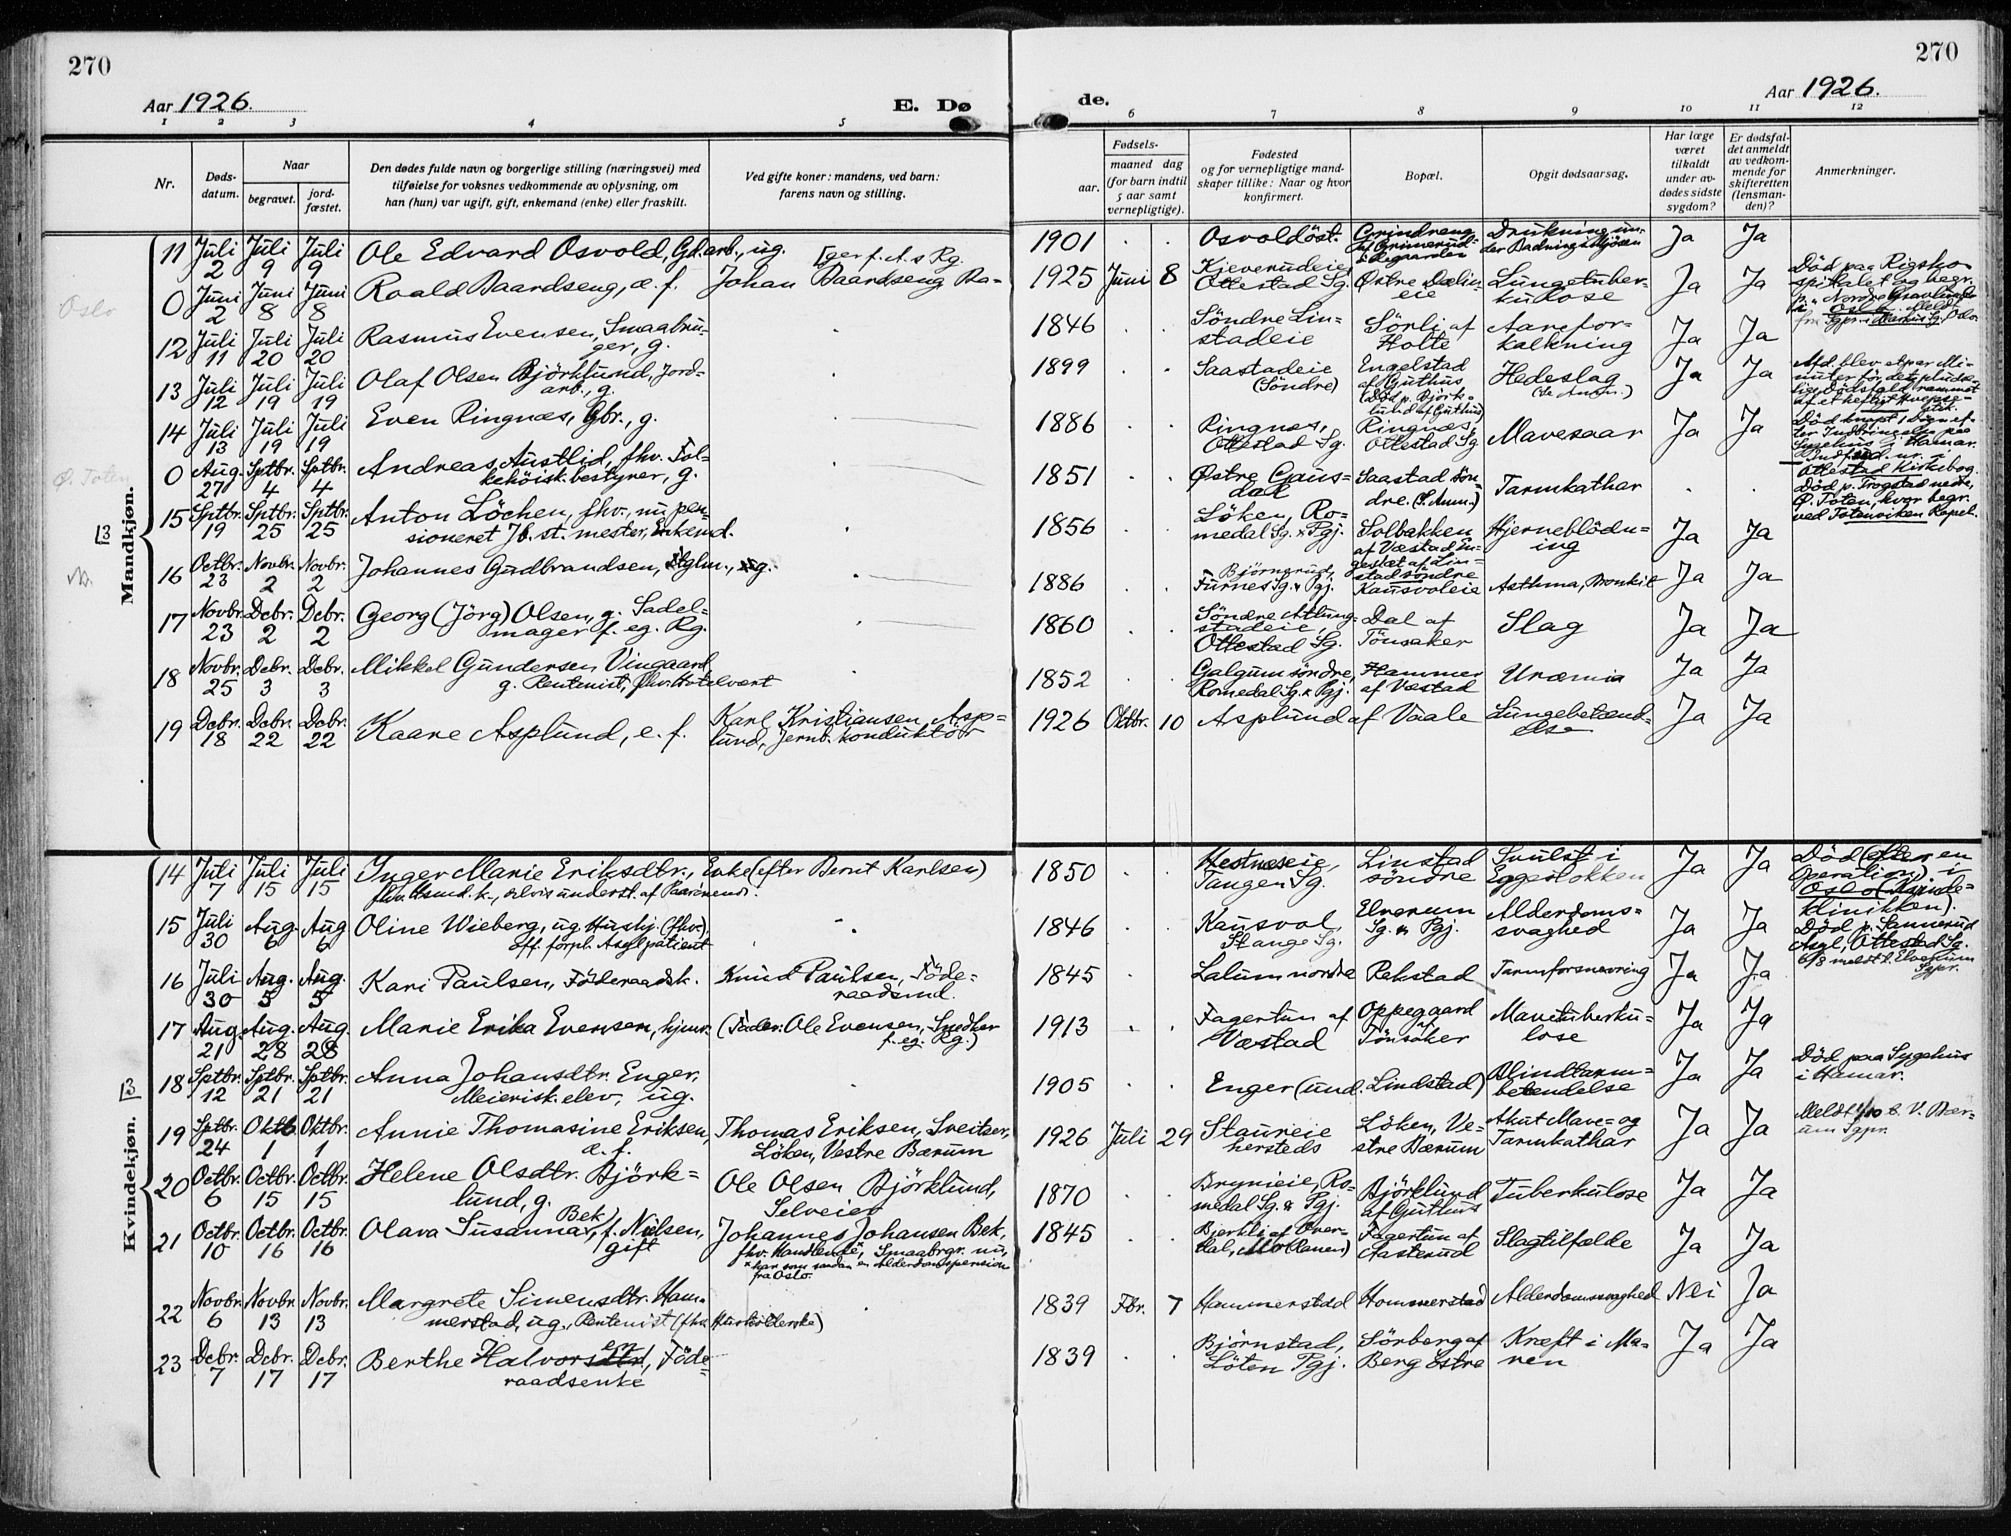 270
270
Aar 1926.
E. Dø
de.
Aar 1926.
1 2 3 4 5 6 7 8 9 10 11 12
Nr.
Døds-
datum.
Naar
begravet.
jord-
fæstet.
Den dødes fulde navn og borgerlige stilling (næringsvei) med
tilføielse for voksnes vedkommende av oplysning, om
han (hun) var ugift, gift, enkemand (enke) eller fraskilt.
Ved gifte koner: mandens, ved barn:
farens navn og stilling.
Fødsels-
aar.
maaned dag
(for barn indtil
5 aar samt
vernepligtige).
Fødested
og for vernepligtige mand-
skaper tillike: Naar og hvor
konfirmert.
Bopæl.
Opgit dødsaarsag.
Har læge
været
tilkaldt
under av-
dødes sidste
sygdom?
Er dødsfal-
det anmeldt
av vedkom-
mende for
skifteretten
(lensman-
den)?
Anmerkninger.
Mandkjøn.
11 Juli 2 Juli 9 Juli 9 Ole Edvard Osvold, Gd.arb., ug. 1901 Osvoldöst. Grindreng af Grimerud Drukning un-
der Badning i Mjösen Ja Ja
Oslo
0 Juni 2 Juni 8 Juni 8 Roald Baardseng, æ. f. Johan Baardseng Ba-
[ger f. A. s Rg. 1925 Juni 8 Kjeverudeie,
Ottestad Sg. Østre Dælin-
eie Lungetuber-
kulose Ja Ja Död paa Rigsho-
spitalet og begr.
p. Nordre Gravlund
12 Juli 11 Juli 20 Juli 20 Rasmus Evensen, Smaabru-
ger, g. 1846 Söndre Lin-
stadeie Sörli af
Holte Aarefor-
kalkning Ja Ja
13 Juli 12 Juli 19 Juli 19 Olaf Olsen Björklund, Jord-
arb., g. 1899 Saastadeie
(Söndre) Engelstad
af Guthus
(Död p. Björk-
lund af Guthus) Hedeslag
(Se Anm.) Ja Ja
14 Juli 13 Juli 19 Juli 19 Even Ringnæs, Gbr., g. 1886 Ringnæs,
Ottestad Sg. Ringnæs,
Ottestad Sg. Mavesaar Ja Ja
Ø. Toten
0 Aug. 27 Sptbr. 4 Sptbr. 4 Andreas Austlid, fhv. Fol-
kehöisk. bestyrer, g. 1851 Østre Gaus-
dal Saastad sön-
dre. (S. Anm.) Tarmkathar
Ottestad Kirkebog.
Död p. Trogstad nedre,
Ø. Toten, hvor begr.
ved Totenviken Kapel.
15 Sptbr. 19 Sptbr. 25 Sptbr. 25 Anton Löchen, fhv., nu pen-
sioneret Jb. st. mester, Enkemd. 1856 Löken, Ro-
medal Sg. & Pgj. Solbakken
af Væstad Hjerneblödn-
ing Ja Ja
16 Octbr. 23 Novbr. 2 Novbr. 2 Johannes Gudbrandsen, 1886 Björnerud,
Furnes Sg. & Pgj. Kausvoleie Asthma, Bronkit Ja Ja
17 Novbr. 23 Debr. 2 Debr. 2 Georg (Jörg) Olsen, g. Sadel-
mager f. eg. Rg. 1860 Söndre Atlung-
stadeie,
Ottestad Sg. Dal af
Tönsaker Slag Ja Ja
18 Novbr. 25 Debr. 3 Debr. 3 Mikkel Gundersen Vingaard
g. Rentenist, fhv. Hotelvert 1852 Galgum söndre,
Romedal Sg. & Pgj. Hammer
af Væstad Uræmia Ja Ja
19 Debr. 18 Debr. 22 Debr. 22 Kaare Asplund, e. f. Karl Kristiansen Asp-
lund, Jernb. konduktör 1926 Oktbr. 10 Asplund af Vaale Lungebetænd-
else Ja Ja
Kvindekjøn.
14 Juli 7 Juli 15 Juli 15 Inger Marie Eriksdtr., Enke (efter Bernt Karlsen)
1850 Hestneseie,
Tangen Sg. Linstad
söndre Svulst i
Eggestokken Ja Ja Död (efter en
Operation) i
Oslo (Kvinde-
klinikken).
15 Juli 30 Aug. 6 Aug 6 Oline Wieberg, ug. Hushj. (fhv.),
off. forpl. Asylpatient 1846 Kausvol
Stange Sg. Elverum
Sg. & Pgj. Alderdoms-
svaghed Ja Ja Död p. Sannerud
Asyl, Ottestad Sg.
6/8 meldt t. Elverum
Sgpr.
16 Juli 30 Aug. 5 Aug. 5 Kari Paulsen, Föderaadsk. Knud Paulsen, Föde-
raadsmd. 1845 Lalum nordre Rekstad Tarmforsnevring Ja Ja
17 Aug. 21 Aug. 28 Aug 28 Marie Erika Evensen, hjemv. (Fader: Ole Evensen, Snedker
f. eg. Rg.) 1913 Fagertun af
Væstad Oppegaard
af
Tönsaker Mavetuberku-
lose Ja Ja
18 Sptbr. 12 Sptbr. 21 Sptbr. 21 Anna Johansdtr. Enger,
Meierisk. elev, ug. 1905 Enger (und. Lindstad) Blindtarm-
betendelse Ja Ja Död paa Sygehus
i Hamar.
19 Sptbr. 24 Oktb 1 Oktbr. 1 Annie Thomasine Eriksen,
æ. f. Thomas Eriksen, Sveitser,
Löken, Vestre Bærum 1926 Juli 29 Staureie
hersteds Löken, Ve-
stre Bærum Akut Mave- og
Tarmkathar Ja Ja Meldt 1/10 t. V. Bær-
um Sgpr.
20 Octbr. 6 Octbr. 15 Octbr. 15 Helene Olsdtr. Björk-
lund, g. Ole Olsen Björklund,
Selveier 1870 Brynieie, Ro-
medal Sg. & Pgj. Björklund
af Guthus Tuberkulose Ja Ja
21 Octbr. 10 Octbr. 16 Octbr. 16 Olava Susanna Bek, f. Nielsen,
gift Johannes Johansen Bek,
fhv. Handlende, Smaabrgr. nu,
* har som saadan en Alderdomspension
fra Oslo. 1845 Bjerkli af Over-
dal, Mo (Ranen) Fagertun af
Aasterud Slagtilfælde Ja Ja
22 Novbr. 6 Novbr. 13 Novbr. 13 Margrete Simensdtr. Ham-
merstad, ug., Rentenist (fhv. Husholderske) 1839 Fbr. 7 Hammerstad Hommerstad Alderdomssvaghed Nei Ja
23 Debr. 7 Debr. 17 Debr. 17 Berthe Halvorsen, Föde-
raadsenke 1839 Björnstad,
Löten Pgj. Sörberg af
Berg östre Kræft i Ma-
ven Ja Ja